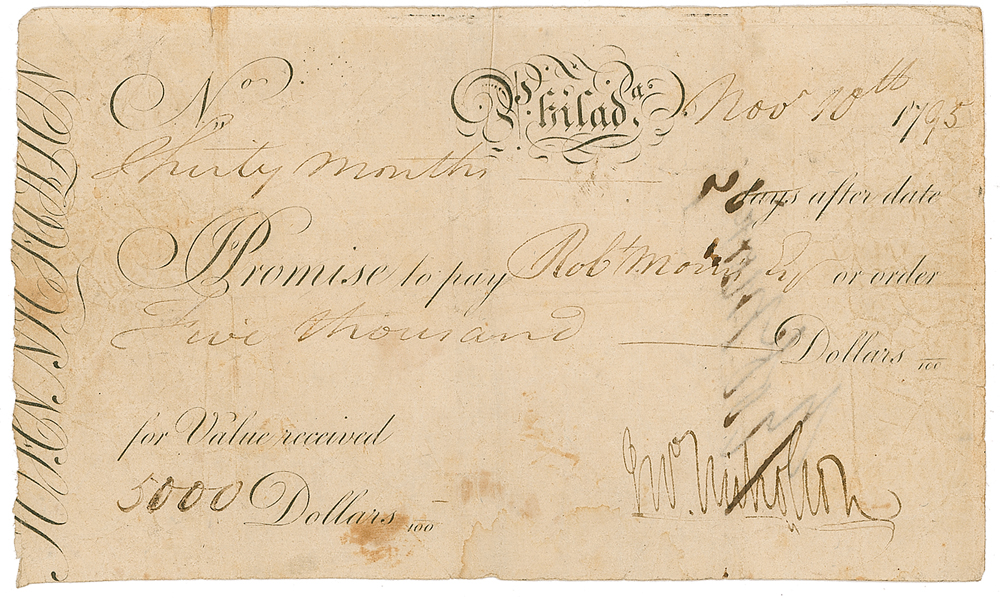 No. Philada. Novr 10th 1795
Thirty Months days after date
I Promise to pay Robt Morris Esqr or order
Five thousand Dollars 100
for Value received
5000 Dollars 100
Jno. Nicholson